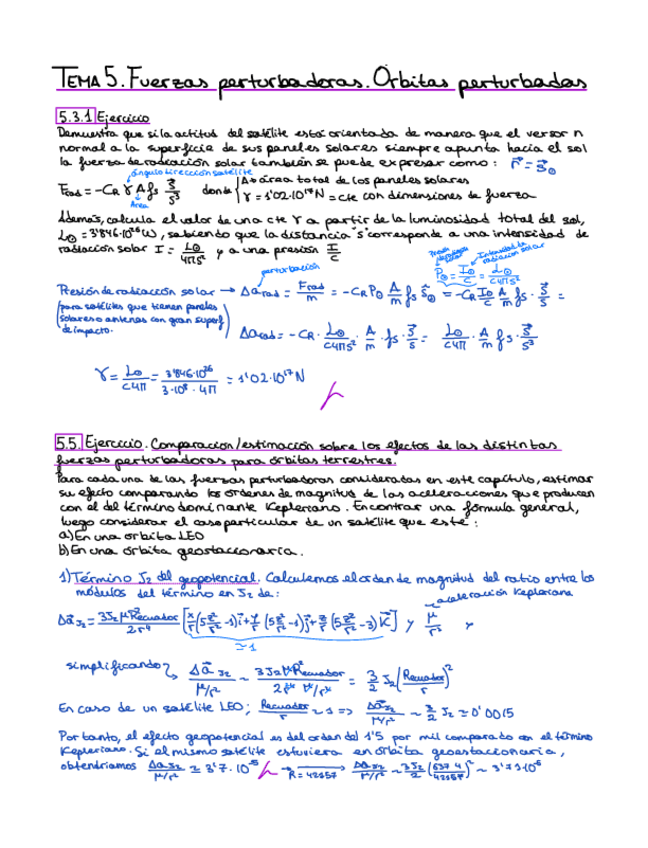 TEMA 5. Fuerzas perturbadoras. Órbitas perturbadas
5.3.1 Ejercicio
Demuestra que si la actitud del satélite está orientada de manera que el versor n
normal a la superficie de sus paneles solares siempre apunta hacia el sol
la fuerza de radiación solar también se puede expresar como: r⃗ = s⃗⊙
ángulo dirección satélite
Frad = -CR γ A fs s⃗/s³ donde { A = área total de los paneles solares
Área
γ = 1'02·10¹⁷N = cte con dimensiones de fuerza
Además, calcula el valor de una cte γ a partir de la luminosidad total del sol,
L⊙ = 3'846·10²⁶W, sabiendo que la distancia "s" corresponde a una intensidad de
radiación solar I = L⊙/4πs² y a una presión I/c
Intensidad de radiación solar
P⊙ = I⊙/c = L⊙/c4πs²
perturbación
Presión de radiación solar → Δa⃗rad = Frad/m = -CR P⊙ A/m fs ŝ⊙ = -CR I⊙/c A/m fs · s⃗/s =
para satélites que tienen paneles
solares o antenas con gran superf
de impacto.
Δa⃗rad = -CR · L⊙/c4πs² · A/m · fs · s⃗/s = L⊙/c4π · A/m fs · s⃗/s³
γ = L⊙/c4π = 3'846·10²⁶/3·10⁸·4π = 1'02·10¹⁷N
5.5. Ejercicio. Comparación/estimación sobre los efectos de las distintas
fuerzas perturbadoras para órbitas terrestres.
Para cada una de las fuerzas perturbadoras consideradas en este capítulo, estimar
su efecto comparando los órdenes de magnitud de las aceleraciones que producen
con el del término dominante Kepleriano. Encontrar una fórmula general,
luego considerar el caso particular de un satélite que esté:
a) En una órbita LEO
b) En una órbita geostacionaria.
1) Término J2 del geopotencial. Calculemos el orden de magnitud del ratio entre los
módulos del término en J2 de:
aceleración Kepleriana
Δa⃗J2 = 3J2μR²ecuador/2r⁴ [x/r(5z²/r²-1)i⃗ + y/r(5z²/r²-1)j⃗ + z/r(5z²/r²-3)k⃗] y μ/r²
≃1
simplificando Δa⃗J2/μ/r² ~ 3J2μR²ecuador/2r⁴ μ/r² = 3/2 J2 (Recuador/r)²
En caso de un satélite LEO; Recuador/r ~ 1 => Δa⃗J2/μ/r² ~ 3/2 J2 ≃ 0'0015
Por tanto, el efecto geopotencial es del orden del 1'5 por mil comparado con el término
Kepleriano. Si el mismo satélite estuviera en órbita geoestacionaria,
obtendríamos ΔaJ2/μ/r² ≃ 3'7·10⁻⁵ R=42157 → ΔaJ2/μ/r² ~ 3J2/2 (6374/42157)² ~ 3'71·10⁻⁵